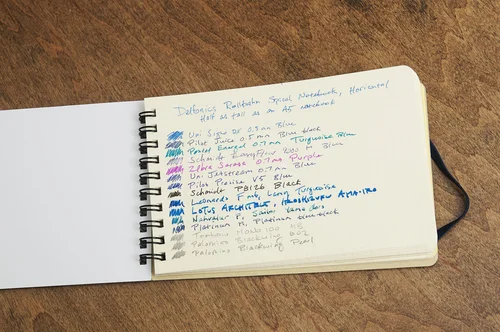 Delfonics Rollbahn Spiral Notebook, Horizontal
Half as tall as an A5 notebook
Uni Signo RT 0.5mm Blue
Pilot Juice 0.5mm Blue black
Pentel Energel 0.7mm Turquoise Blue
Schmidt EasyFlow 9000 M Blue
Zebra Sarasa 0.7mm Purple
Uni Jetstream 0.7mm Blue
Pilot Precise V5 Blue
Schmidt Black
Leonardo F nib, Lamy Turquoise
LOTUS ARCHITECT, IROSHIZUKU AMA-IRO
Nahvalur F, Sailor
Platinum F, Platinum blue black
Tombow MONO 100 HB
Palomino Blackwing 602
Palomino Blackwing Pearl